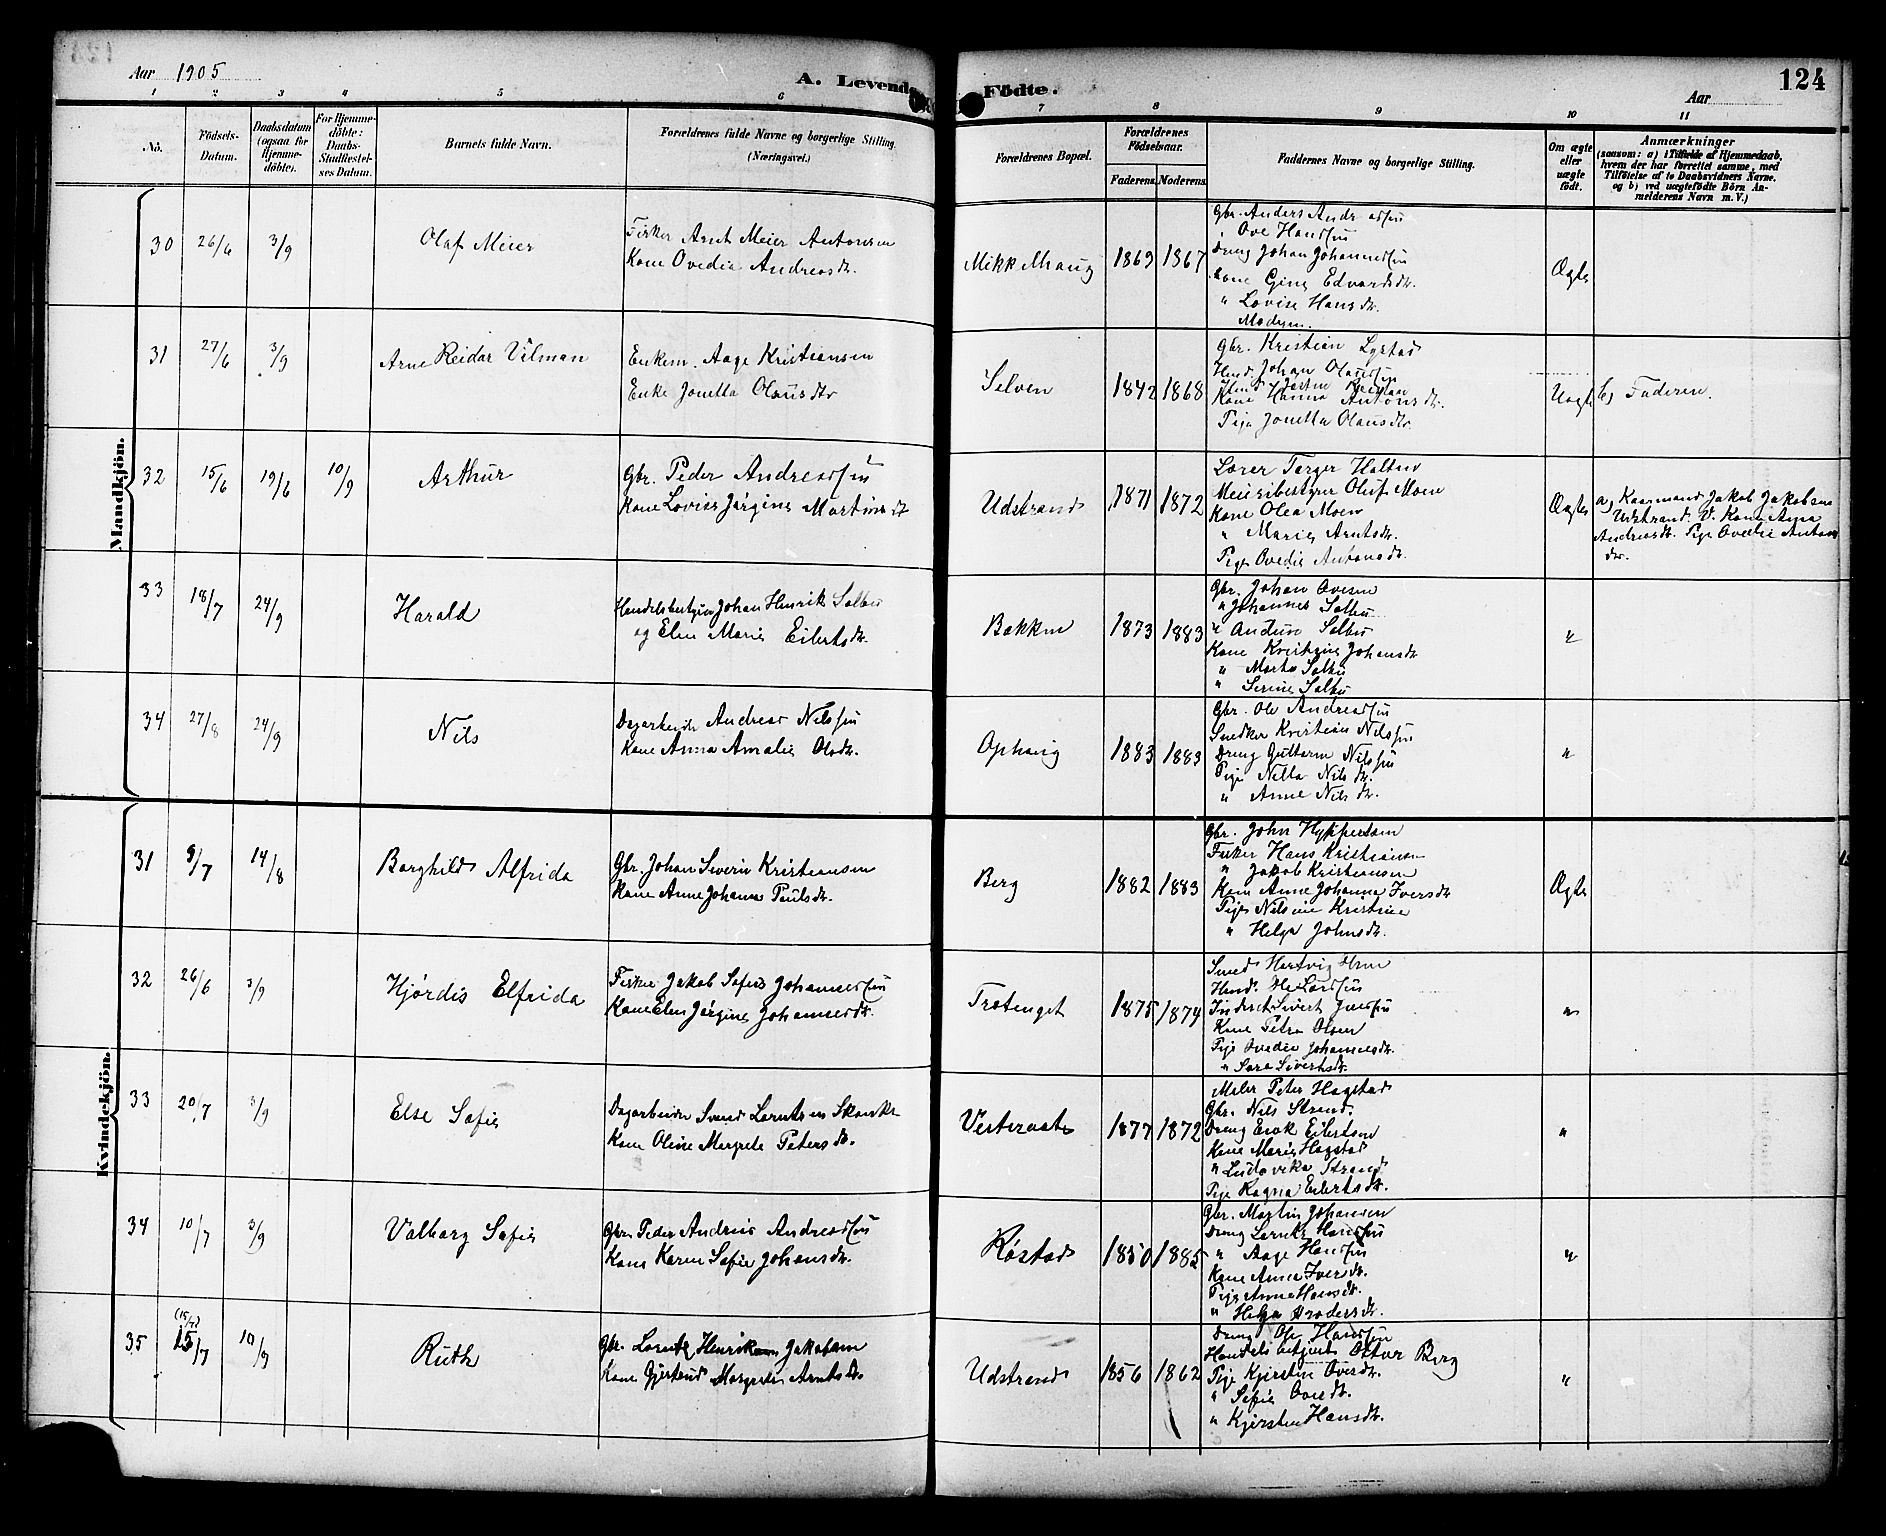 Aar 1905
A. Levende Födte.
Aar
124
1 2 3 4 5 6 7 8 9 10 11
No.
Födsels-Datum.
Daabsdatum (ogsaa for Hjemmedöbte).
For Hjemmedöbte: Daabs-Stadfæstelses Datum.
Barnets fulde Navn.
Forældrenes fulde Navne og borgerlige Stilling. (Næringsvei.)
Forældrenes Bopæl.
Forældrenes Födselsaar.
Faderens. Moderens.
Faddernes Navne og borgerlige Stilling.
Om ægte eller uægte födt.
Anmærkninger
(saasom: a) i Tilfælde af Hjemmedaab,
hvem der har forrettet samme, med
Tilföielse af to Daabsvidners Navne,
og b) ved uægtefödte Börn An-
melderens Navn m. V.)
Mandkjön.
30 26/6 3/9 Olaf Meier
Fisker Arnt Meier Antonsen
Kone Ovedia Andreasdtr.
Mikkelhaug 1869 1867
Gbr. Anders Andreassen
" Ove Hanssen
Dreng Johan Johannessen
Kone Gina Edvardsdtr.
" Lovise Hansdtr.
Moderen.
Ægte
31 27/6 3/9 Arne Reidar Vilman
Enkem. Aage Kristiansen
Enke Jonetta Olausdtr
Selven 1842 1868
Gbr. Kristian Lystad
Husd. Johan Olaussen
Kone Hanna Antonsdtr.
Pige Jonetta Olausdtr.
Uægte b) Faderen.
32 15/6 19/6 10/9 Arthur
Gbr. Peder Andreassen
Kone Lovise Jørgine Martinsdt
Udstrand 1871 1872
Lærer Torger Holten
Meieribestyrer Oluf Moen
Kone Olea Moen
" Marie Arntsdr.
Pige Ovedie Antonsdr.
Ægte
a) Kaarmand Jakob Jakobsen
Udstrand. V. Kone Anna
Andreasdtr. Pige Ovedie Antons
dtr.
33 18/7 24/9 Harald
Handelsbetjen Johan Henrik Selbu
og Elen Marie Eilertsdr.
Bakken 1873 1883
Gbr. Johan Ovesen
" Johannes Selbu
" Andreas Selbu
Kone Kristine Johansdtr
" Marta Selbu
" Serine Selbu
"
34 27/8 24/9 Nils
Dagarbeider Andreas Nilssen
Kone Anna Amalie Olsdr.
Ophaug 1883 1883
Gbr. Ole Andreassen
Snedker Kristian Nilssen
Dreng Guttorm Nilssen
Pige Nilla Nilsdtr.
" Anne Nilsdtr.
"
Kvindekjön.
31 9/7 14/8 Borghild Alfrida
Gbr. Johan Severin Kristiansen
Kone Anne Johanna Paulsdr.
Berg 1882 1883
Gbr. John Hyppertsen
Fisker Hans Kristiansen
" Jakob Kristiansen
Kone Anne Johanna Iversdtr
Pige Nilsine Kristine
" Helga Johnsdr.
Ægte
32 26/6 3/9 Hjördis Elfrida
Fisker Jakob Sefus Johannessen
Kone Elen Jørgine Johannesdtr.
Trøtenget 1875 1874
Smed Hartvig
Husd. Ole Larssen
Kone Petra Olsen
Pige Ovedie Johannesdr.
" Sara Sivertsdtr.
"
33 20/7 3/9 Else Sofie
Dagarbeider Svend Lorentsen Skanke
Kone Oline Margrete Petersdtr.
Vesteraat 1877 1872
Maler Peter Hagstad
Gbr. Nils Strand.
Dreng Erik Eilertsen
Kone Marie Hagstad
" Ludovika Strand
Pige Ragna Eilertsdtr.
"
34 10/7 3/9 Valborg Sofie
Gbr. Peder Andreas Andreassen
Kone Karen Sofie Johansdtr.
Røstad 1850 1885
Gbr. Martin Johansen
Dreng Lornts Hanssen
" Aage Hanssen
Kone Anna Iversdtr.
Pige Anne Hansdtr.
" Helga Brodersdtr.
"
35 (15/7) 15/7 10/9 Ruth
Gbr. Lorntz Henriksen Jakobsen
Kone Gjertrud Margrete Arntsdtr
Udstrand 1856 1862
Dreng Ole Hanssen
Handelsbetjent Ottar Berg
Pige Kjerstine Ovesdtr.
" Sofie Ovesdtr.
" Kjersten Hansdtr.
"